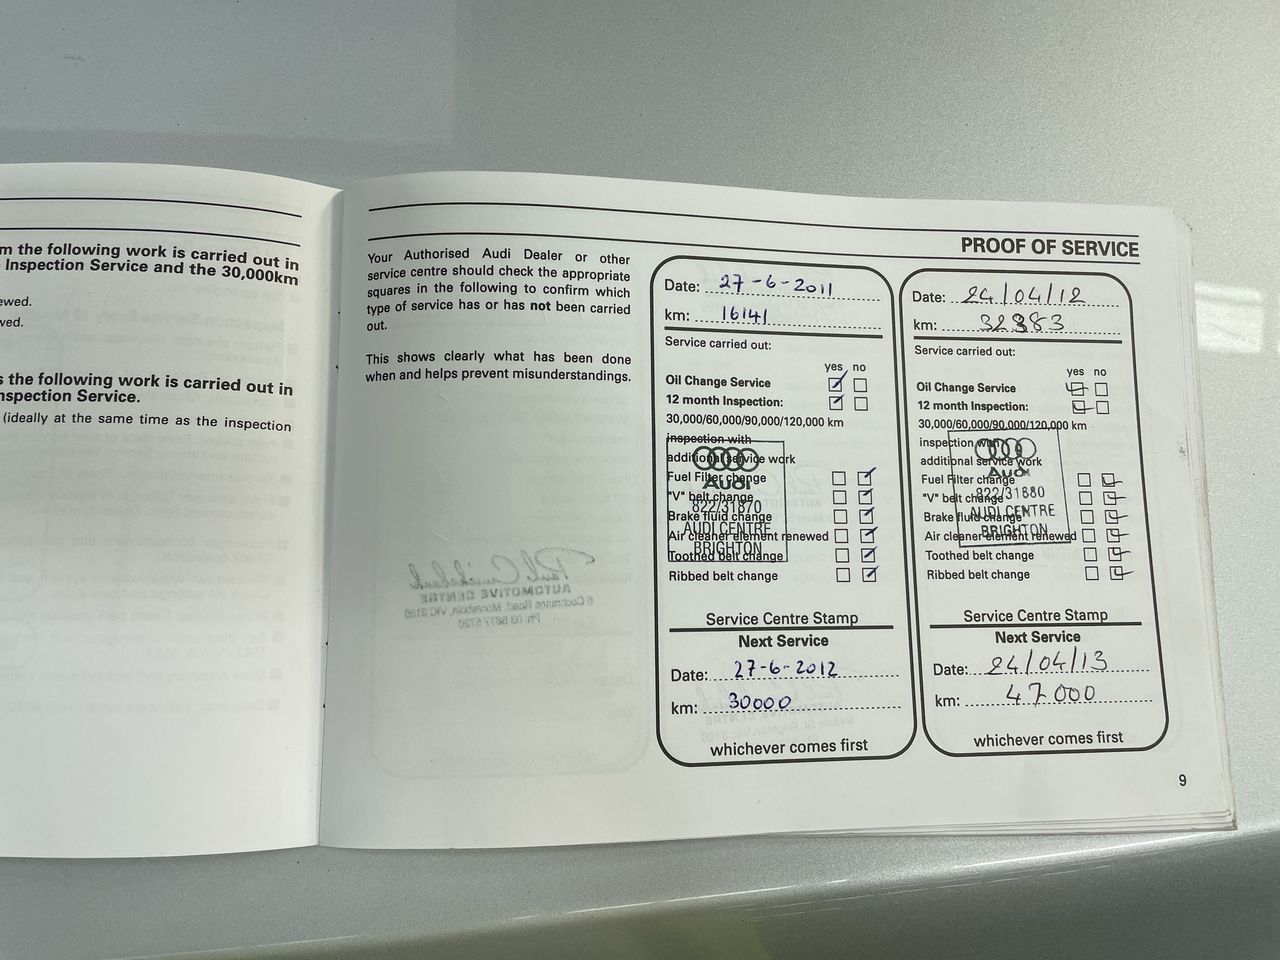 m the following work is carried out in
Inspection Service and the 30,000km
ewed.
wed.
s the following work is carried out in
nspection Service.
(ideally at the same time as the inspection
Your Authorised Audi Dealer or other
service centre should check the appropriate
squares in the following to confirm which
type of service has or has not been carried
out.
This shows clearly what has been done
when and helps prevent misunderstandings.
PROOF OF SERVICE
Date: 27-6-2011
km: 16141
Service carried out:
yes no
Oil Change Service
12 month Inspection:
30,000/60,000/90,000/120,000 km
inspection with
additional service work
Fuel Filter change
"V" belt change
Brake fluid change
Air cleaner element renewed
Toothed belt change
Ribbed belt change
Audi
822/31870
AUDI CENTRE
BRIGHTON
Service Centre Stamp
Next Service
Date: 27-6-2012
km: 30000
whichever comes first
Date: 24/04/12
km: 32383
Service carried out:
yes no
Oil Change Service
12 month Inspection:
30,000/60,000/90,000/120,000 km
inspection with
additional service work
Fuel Filter change
"V" belt change
Brake fluid change
Air cleaner element renewed
Toothed belt change
Ribbed belt change
Audi
822/31880
AUDI CENTRE
BRIGHTON
Service Centre Stamp
Next Service
Date: 24/04/13
km: 47000
whichever comes first
9